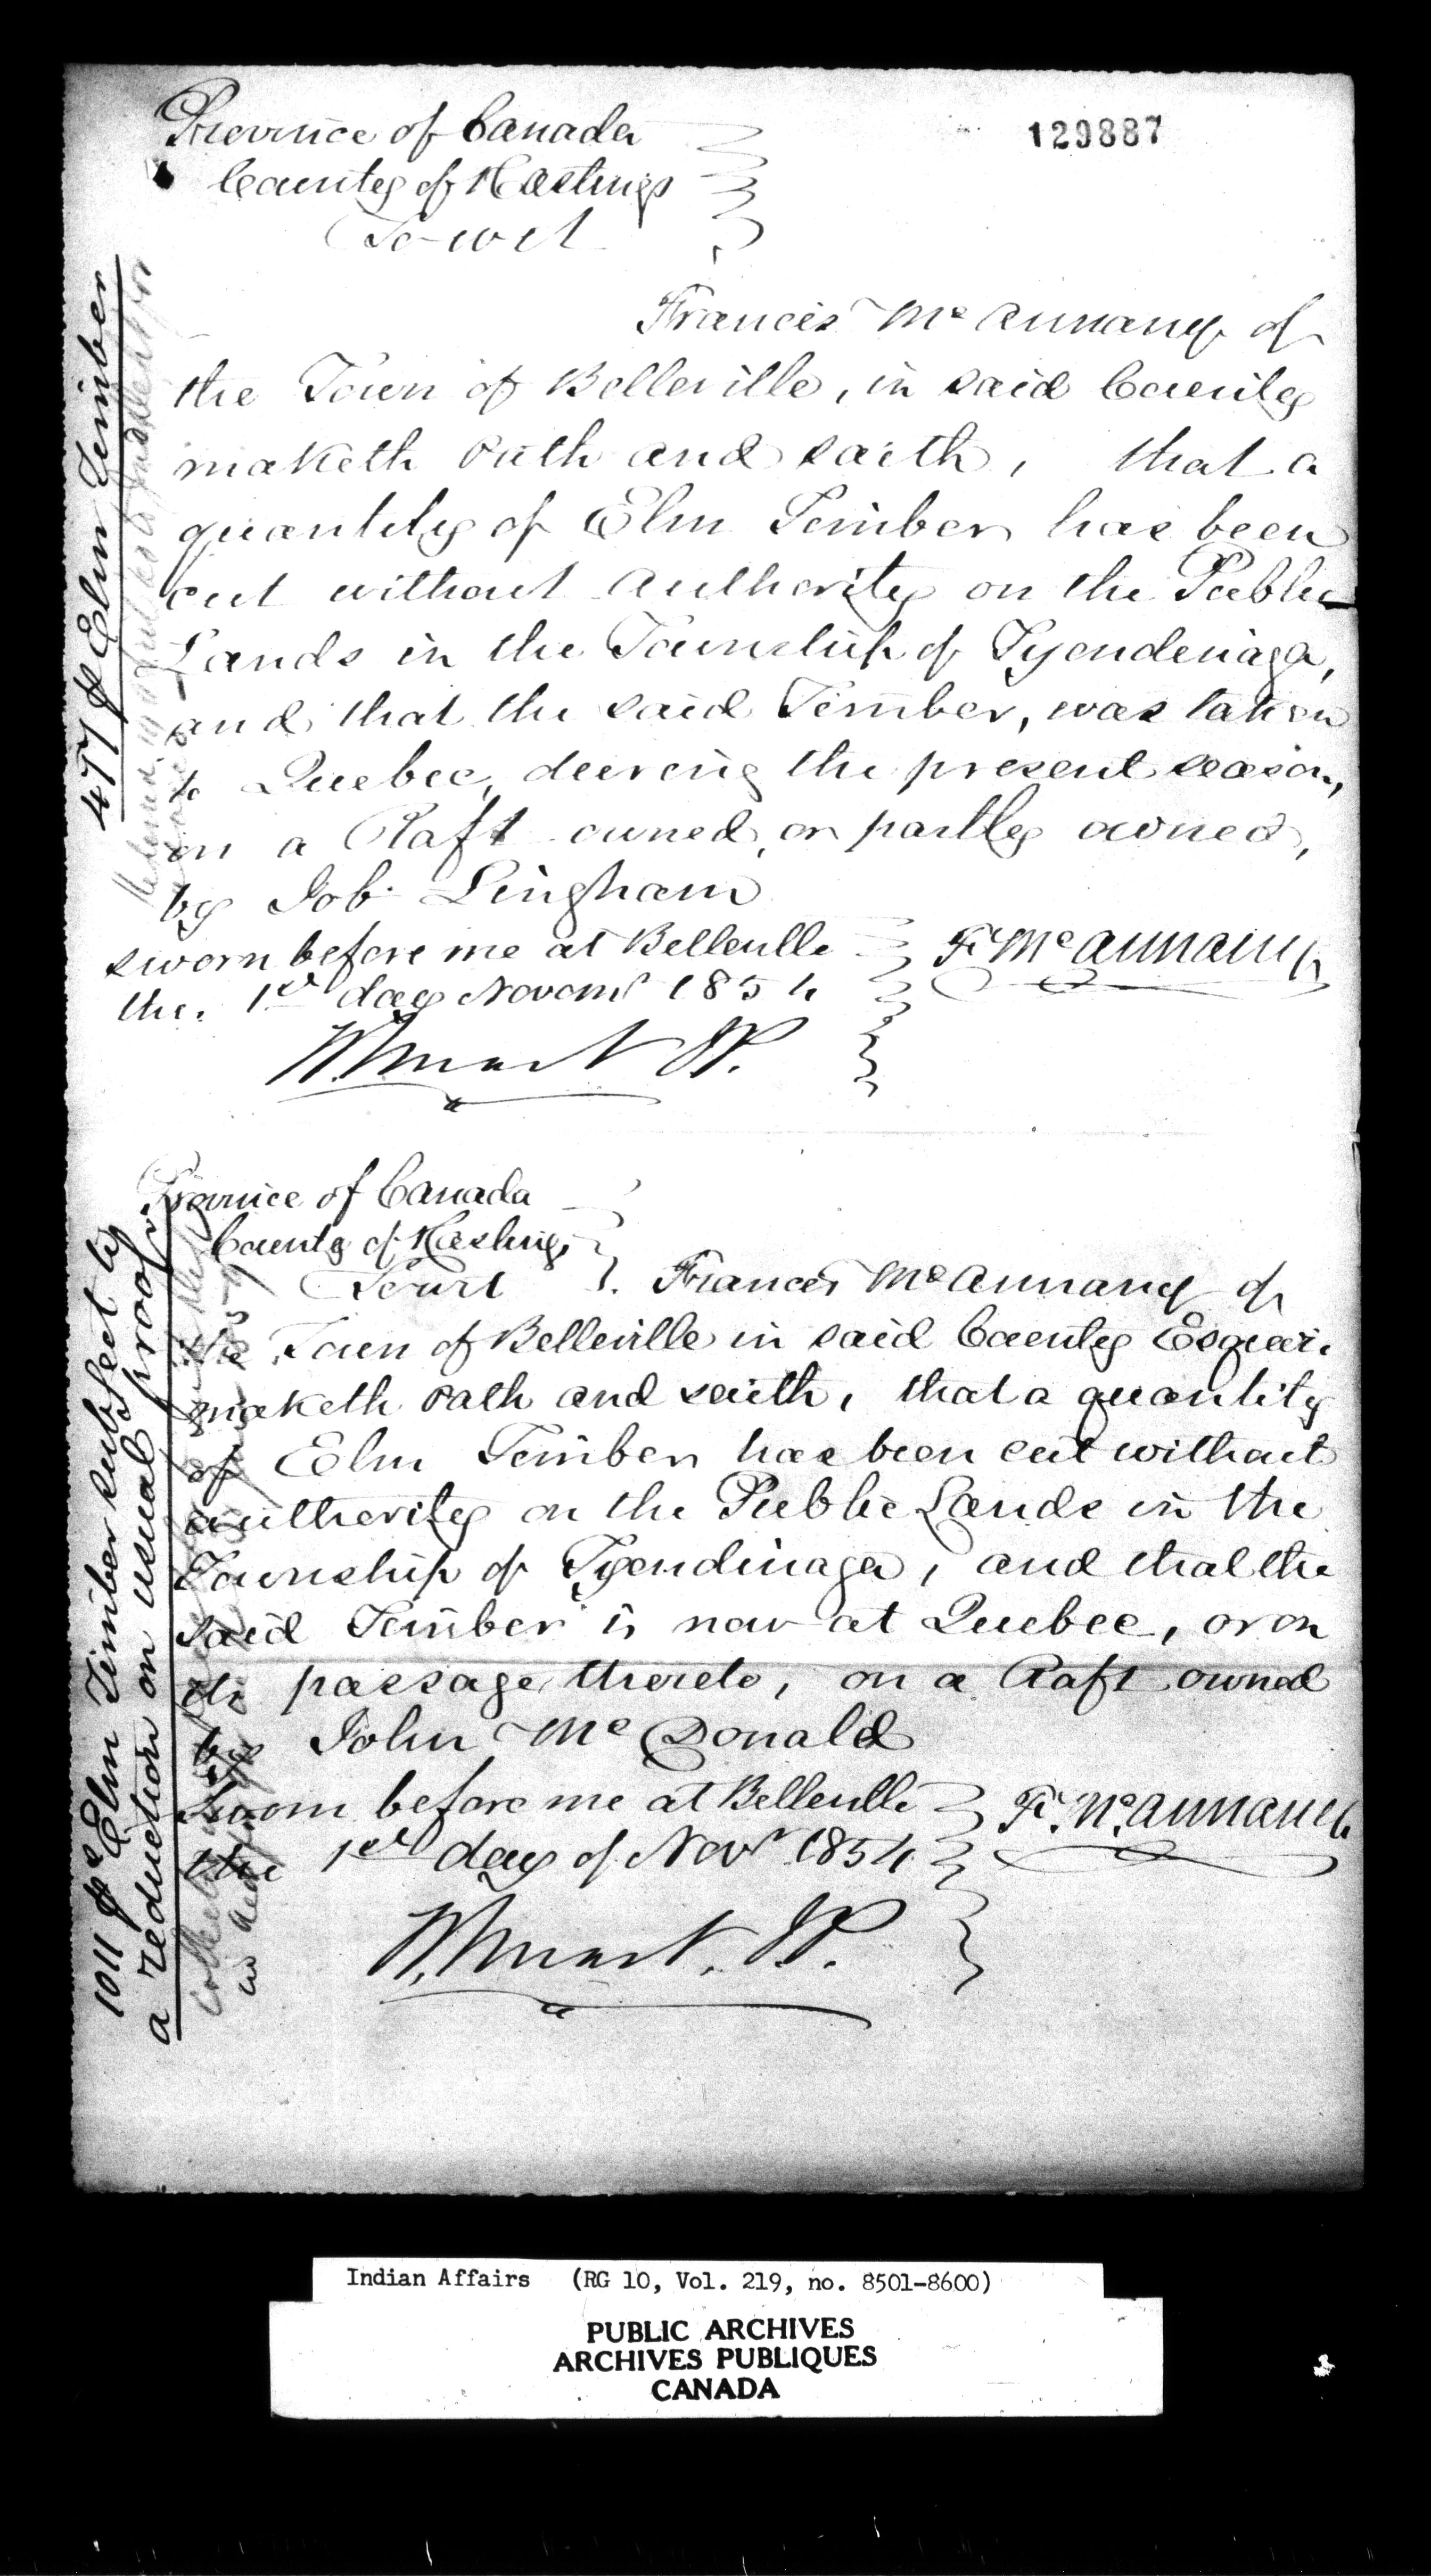 129887
Province of Canada
County of Hastings
To-wit
Francis McAnnany of
the Town of Belleville, in said County
maketh Oath and saith, that a
quantity of Elm Timber has been
cut without authority on the Public
Lands in the Township of Tyendenaga,
and that the said Timber, was taken
to Quebec, during the present season,
on a Raft owned, or partly owned,
by Job Lingham
sworn before me at Belleville
the 1st day Novemr 1854
F. McAnnany
J.P.
477 ft Elm Timber
Province of Canada
County of Hastings
To wit
Francis McAnnany of
the Town of Belleville in said County Esquire
maketh Oath and saith, that a quantity
of Elm Timber has been cut without
authority on the Public Lands in the
Township of Tyendinaga, and that the
said Timber is now at Quebec, or on
its passage thereto, on a Raft owned
by John McDonald
Sworn before me at Belleville
the 1st day of Novr 1854
F. McAnnany
J.P.
1011 ft Elm Timber subject to
a reduction on usual proof
Indian Affairs (RG 10, Vol. 219, no. 8501-8600)
PUBLIC ARCHIVES
ARCHIVES PUBLIQUES
CANADA